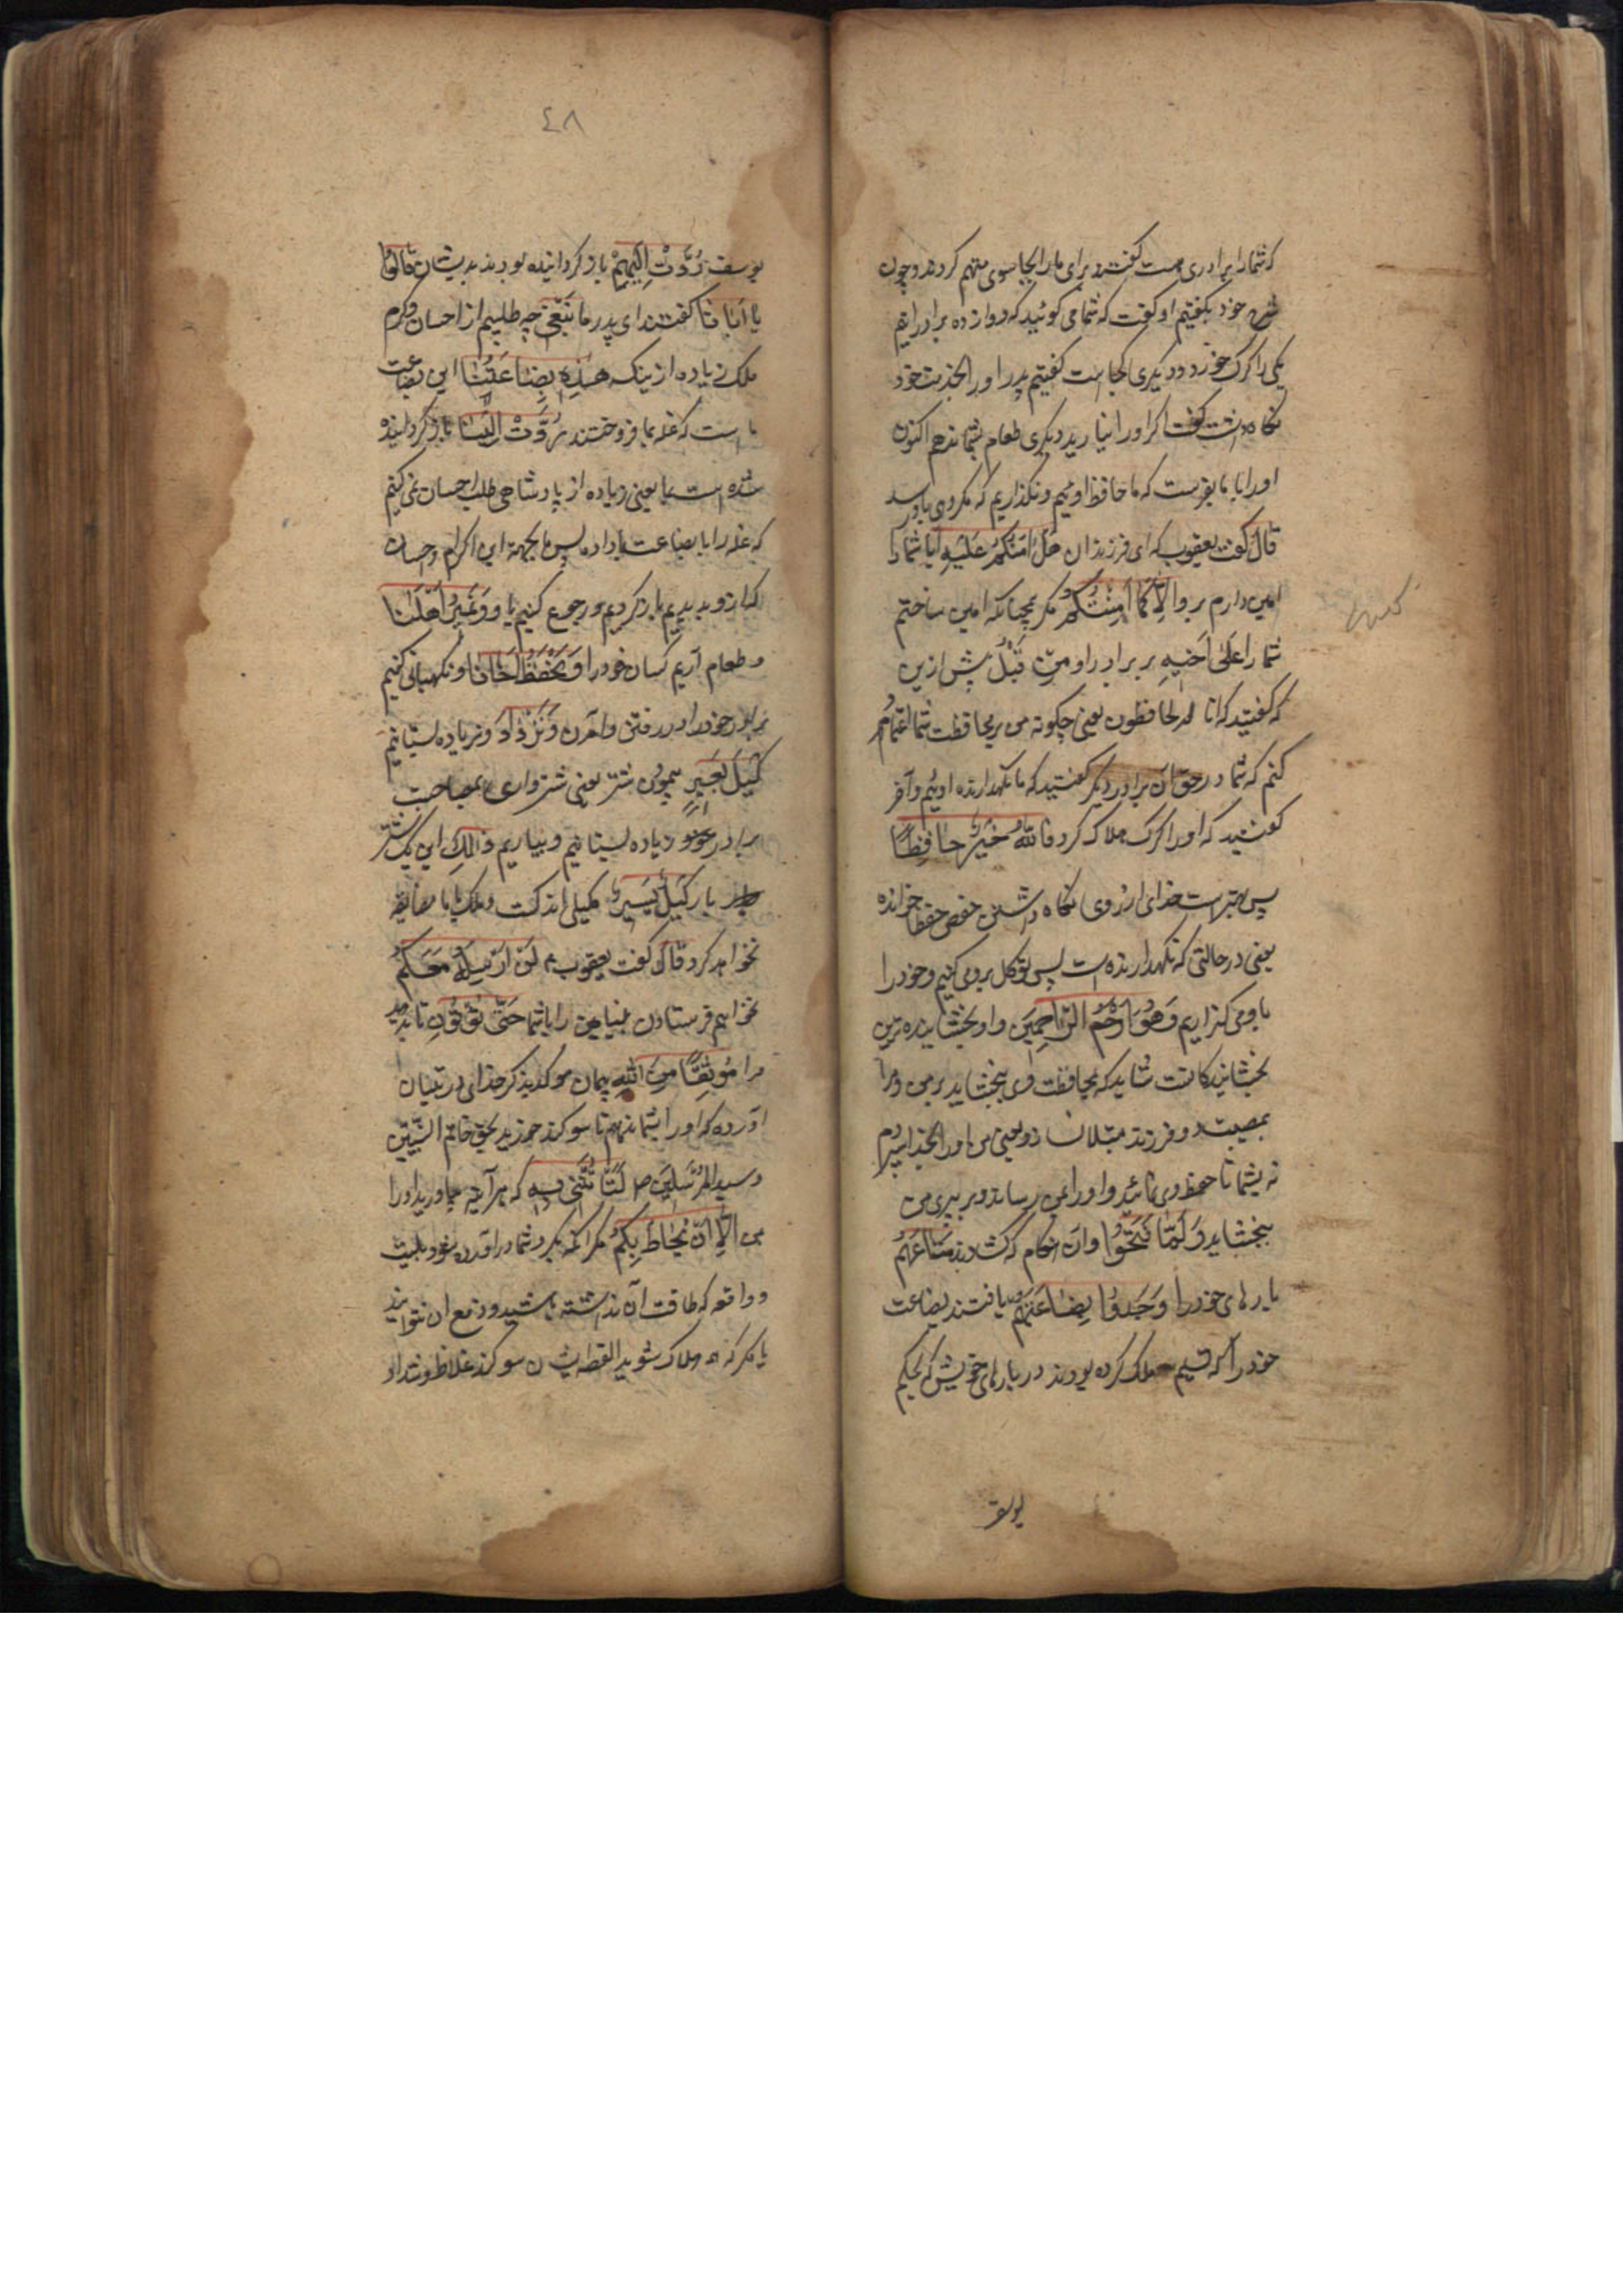 که شما را برادری هست گفتند برای ما را بجاسوسی متهم کردند و چون
شرح خود بگفتیم او گفت که شما می گوئید که دوازده برادرایم
یکی را گرگ خورد و دیگری کجاست گفتیم پدر او را بخدمت خود
نگاه داشت گفت اگر او را نیارید دیگری طعام بشما ندهم اکنون
او را با ما بفرست که ما حافظ اوئیم و نگذاریم که مکروهی باو رسد
قَالَ گفت یعقوب که ای فرزندان هَلْ اٰمَنُكُمْ عَلَیْهِ آیا شما را
امین دارم برو اِلَّا كَمَا اَمِنْتُكُمْ مگر همچنانکه امین ساختم
شما را عَلٰی اَخِیهِ بر برادر او مِنْ قَبْلُ پیش ازین
که گفتید که انا له لحافظون یعنی چگونه من بر محافظت شما اعتماد
کنم که شما در حق آن برادر دیگر گفتید که ما نگهدارنده اوئیم و آخر
گفتید که او را گرگ هلاک کرد فَاللّٰهُ خَیْرٌ حَافِظًا
پس بهتر است خدای از روی نگاه داشتن حفص حفظا خوانده
یعنی در حالتی که نگهدارنده است پس توکل بروی کنیم و خود را
باو می گذاریم وَهُوَ اَرْحَمُ الرَّاحِمِینَ و او بخشاینده ترین
بخشایندگانست شاید که بمحافظت وی ببخشاید بر من و مرا
بمصیبت دو فرزند مبتلا نسازد یعنی من او را بخدا سپردم
نه بشما تا حفظ وی نمائید و او را بمن رساند و بر پیری من
ببخشاید وَلَمَّا فَتَحُوا و آن هنگام که گشادند مَتَاعَهُمْ
بارهای خود را وَجَدُوا بِضَاعَتَهُمْ یافتند بضاعت
خود را که تسلیم ملک کرده بودند در بارهای خویش که بحکم
یوسف
٤٨
یوسف رُدَّتْ اِلَیْهِمْ باز گردانیده بودند بدیشان قَالُوا
یَا اَبَانَا گفتند ای پدر ما نَبْغِی چه طلبیم از احسان و کرم
ملک زیاده ازینکه هٰذِهِ بِضَاعَتُنَا این بضاعت
ماست که غله بما فروختند رُدَّتْ اِلَیْنَا باز گردانیده
شده است بما یعنی زیاده از پادشاهی طلب احسان نمی کنیم
که غله را با بضاعت بما داده پس ما بجهة این اکرام و احسان
که ازو بدیدیم باز گردیم و رجوع کنیم باو وَنَمِیرُ اَهْلَنَا
و طعام آریم کسان خود را وَنَحْفَظُ اَخَانَا و نگهبانی کنیم
برادر خود را در رفتن و آمدن وَنَزْدَادُ و زیاده بستانیم
كَیْلَ بَعِیرٍ پیمودن شتر یعنی شترواری بمصاحبت
برادر خود زیاده بستانیم و بیاریم ذٰلِكَ این یک شتر
بار كَیْلٌ یَسِیرٌ کیلی اندکست و ملک با ما مضایقه
نخواهد کرد قَالَ گفت یعقوب ع لَنْ اُرْسِلَهُ مَعَكُمْ
نخواهم فرستادن بنیامین را با شما حَتّٰی تُؤْتُونِ تا بدهید
مرا مَوْثِقًا مِنَ اللّٰهِ پیمان موکد بذکر خدای در تبیان
آورده که او را بشما ندهم تا سوگند خورید بحق خاتم النبیین
و سید المرسلین ص لَتَأْتُنَّنِی بِهِ که هرآینه بیاورید او را
بمن اِلَّا اَنْ یُحَاطَ بِكُمْ مگر آنکه
و واقعه که طاقت آن نداشته باشید و دفع آن نتوانید
یا مگر که هلاک شوید القصه ایشان سوگند غلاظ و شداد